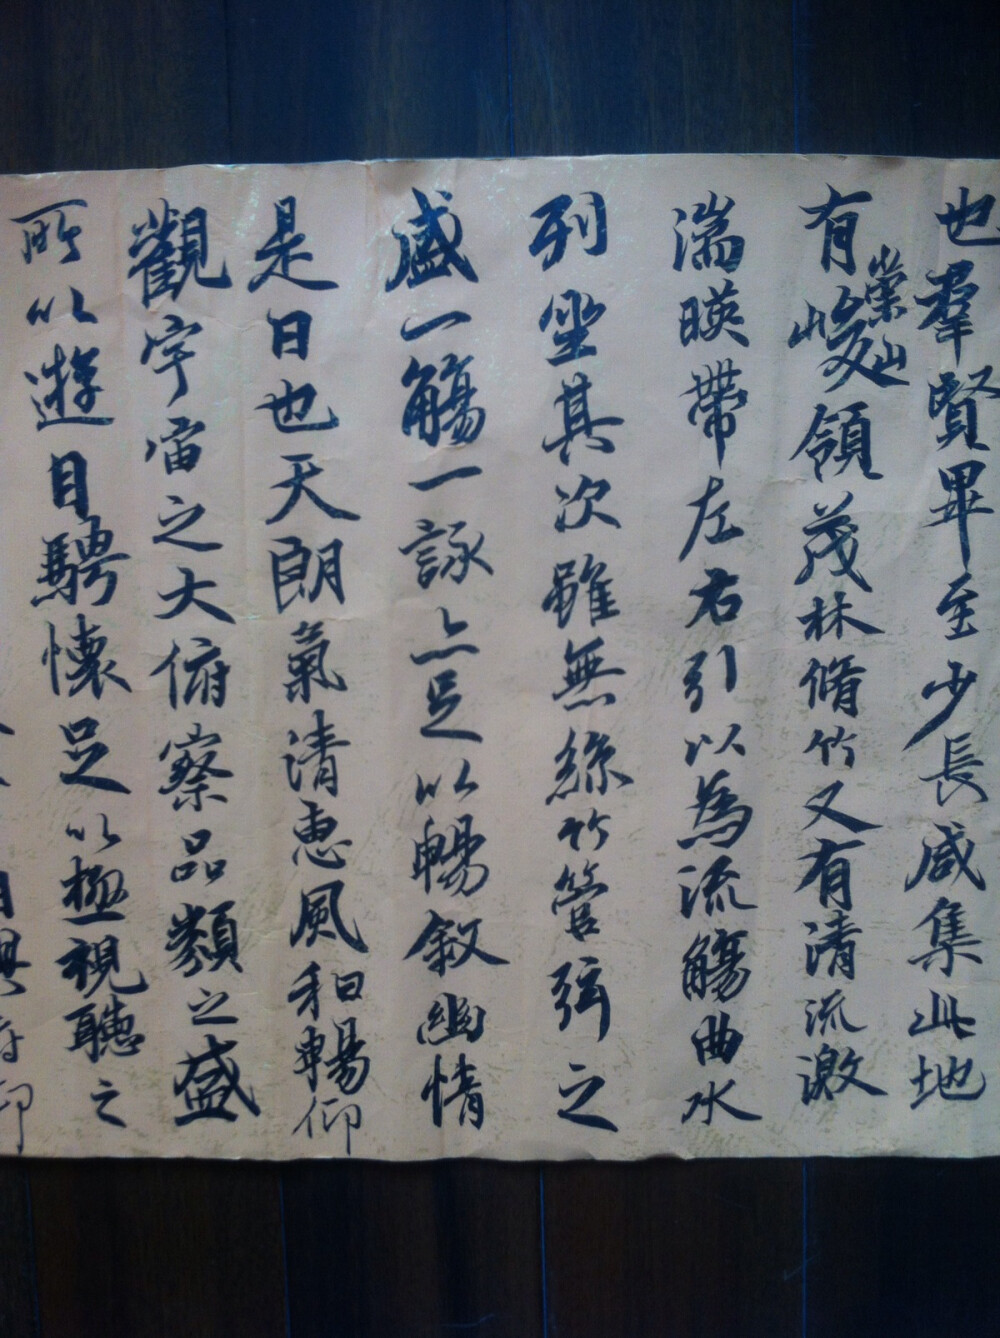 也群賢畢至少長咸集此地
有崇山峻領茂林脩竹又有清流激
湍暎帶左右引以為流觴曲水
列坐其次雖無絲竹管弦之
盛一觴一詠亦足以暢敘幽情
是日也天朗氣清惠風和暢仰
觀宇宙之大俯察品類之盛
所以遊目騁懷足以極視聽之